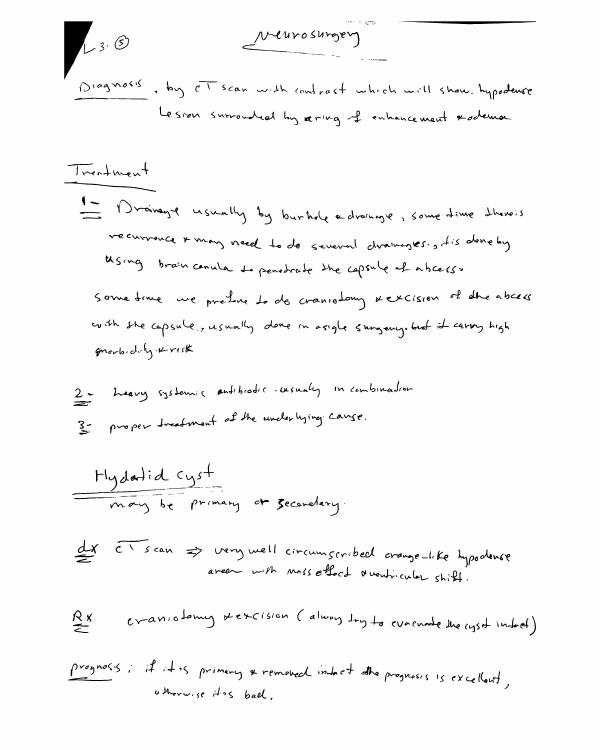 L 3. ⑤
Neurosurgery
Diagnosis, by CT scan with contrast which will show hypodense
Lesion surrounded by a ring of enhancement & odema
Treatment
1- Drainage usually by burhole & drainage, some time there is
recurrence & may need to do several drainages, it is done by
using brain canula to penetrate the capsule of abcess.
Some time we prefare to do craniotomy & excision of the abcess
with the capsule, usually done in a sigle surgery, but it carry high
morbidity & risk
2- heavy systemic antibiotic usually in combination
3- proper treatment of the underlying cause.
Hydatid cyst
may be primary or secondary.
dx CT scan ⇒ very well circumscribed orange-like hypodense
area with mass effect & ventricular shift.
Rx craniotomy & excision (alway try to evacuate the cyst intact)
prognosis: if it is primary & removed intact the prognosis is excellent,
otherwise it is bad.